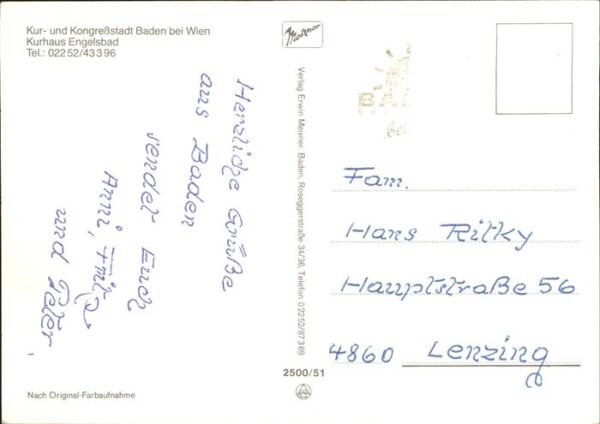 Kur- und Kongreßstadt Baden bei Wien
Kurhaus Engelsbad
Tel.: 02252/43396
Herzliche Grüße
aus Baden
sendet Euch
Anni,
und Peter
Nach Original-Farbaufnahme
Verlag Erwin Meixner, Baden, Roseggerstraße 34/36, Telefon 02252/87369
2500/51
Fam.
Hans Ritky
Hauptstraße 56
4860 Lenzing